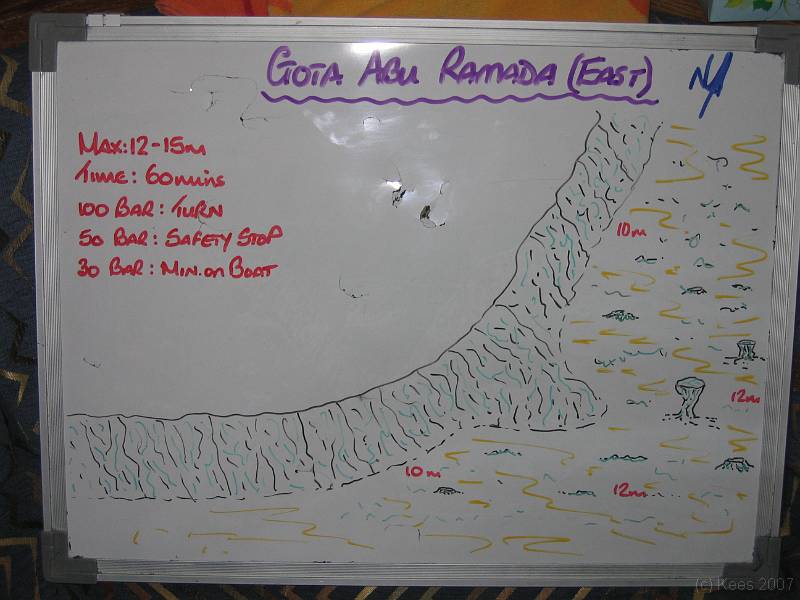 GOTA ABU RAMADA (EAST)
N
MAX: 12-15m
TIME: 60 mins
100 BAR: TURN
50 BAR: SAFETY STOP
30 BAR: MIN. ON BOAT
10m
12m
10m
12m
(c) Kees 2007